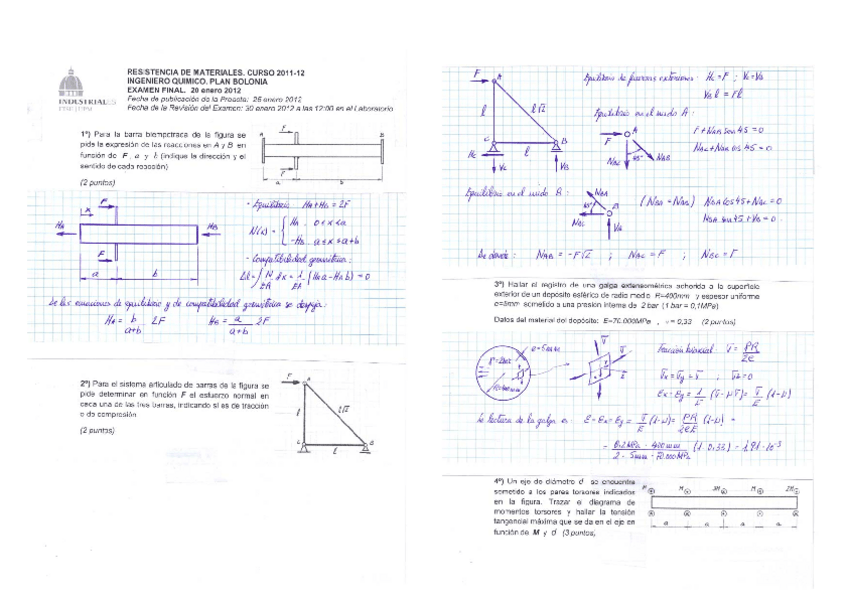 RESISTENCIA DE MATERIALES. CURSO 2011-12
INGENIERO QUIMICO. PLAN BOLONIA
EXAMEN FINAL. 20 enero 2012
Fecha de publicación de la Preacta: 26 enero 2012
Fecha de la Revisión del Examen: 30 enero 2012 a las 12:00 en el Laboratorio
INDUSTRIALES
ETSII | UPM
1º) Para la barra biempotrada de la figura se
pide la expresión de las reacciones en A y B en
función de F, a y b (indique la dirección y el
sentido de cada reacción)
(2 puntos)
A F B
F
a b
HA F HB
x
F
a b
· Equilibrio HA+HB = 2F
N(x) = HA 0<x<a
-HB a≤x≤a+b
· Compatibilidad geométrica:
ΔL = ∫ N/EA dx = 1/EA (HA a - HB b) = 0
De las ecuaciones de equilibrio y de compatibilidad geométrica se despeja:
HA = b/(a+b) 2F HB = a/(a+b) 2F
2º) Para el sistema articulado de barras de la figura se
pide determinar en función F el esfuerzo normal en
cada una de las tres barras, indicando si es de tracción
o de compresión
(2 puntos)
F A
l l√2
C l B
F A
l l√2
C l B
HC VC VB
Equilibrio de fuerzas exteriores: HC = F ; VC = VB
VB l = Fl
Equilibrio en el nudo A:
F A
NAC 45° NAB
F + NAB sen 45 = 0
NAC + NAB cos 45 = 0
Equilibrio en el nudo B:
NBA
45°
NBC B
VB
(NBA = NAB) NBA cos 45 + NBC = 0
NBA sen 45 + VB = 0
De donde: NAB = -F√2 ; NAC = F ; NBC = F
3º) Hallar el registro de una galga extensométrica adherida a la superficie
exterior de un depósito esférico de radio medio R=400mm y espesor uniforme
e=5mm sometido a una presión interna de 2 bar (1 bar = 0,1MPa)
Datos del material del depósito: E=70.000MPa , ν = 0,33 (2 puntos)
e=5mm
P=2bar
R=400mm
Tensión biaxial: σ = PR/2e
σx = σy = σ ; σz = 0
εx = εy = 1/E (σ - νσ) = σ/E (1-ν)
La lectura de la galga es: ε = εx = εy = σ/E (1-ν) = PR/2eE (1-ν) =
= 0.2MPa · 400mm / 2 · 5mm · 70.000MPa (1-0.33)
4º) Un eje de diámetro d se encuentra
sometido a los pares torsores indicados
en la figura. Trazar el diagrama de
momentos torsores y hallar la tensión
tangencial máxima que se da en el eje en
función de M y d (3 puntos)
M M 3M M 2M
a a a a